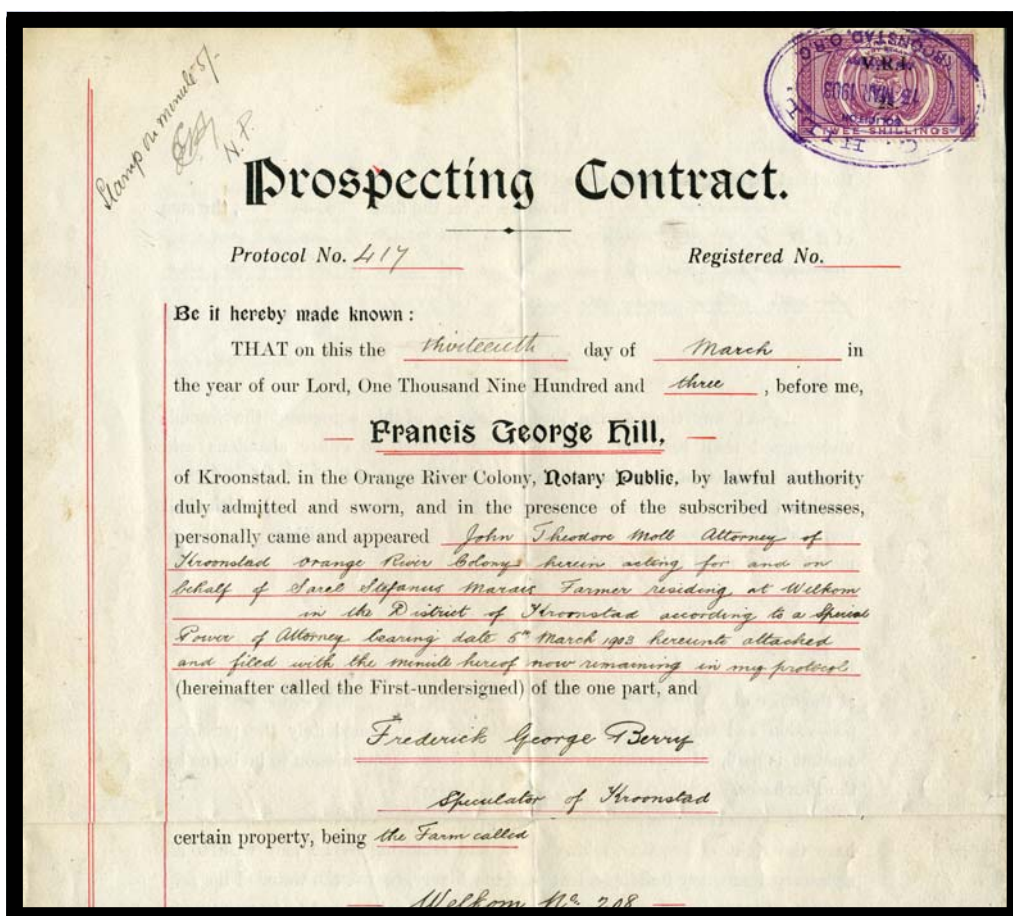 Stamp on minute 5/-
N.P.
KROONSTAD, O.R.C.
V.R.I.
15 MAR 1903
TWEE SHILLINGS
Prospecting Contract.
Protocol No. 417 Registered No.
Be it hereby made known :
THAT on this the thirteenth day of March in
the year of our Lord, One Thousand Nine Hundred and three , before me,
— Francis George Hill, —
of Kroonstad. in the Orange River Colony, Notary Public, by lawful authority
duly admitted and sworn, and in the presence of the subscribed witnesses,
personally came and appeared John Theodore Moll Attorney of
Kroonstad Orange River Colony herein acting for and on
behalf of Sarel Stefanus Marais Farmer residing at Welkom
in the District of Kroonstad according to a Special
Power of Attorney bearing date 5th March 1903 hereunto attached
and filed with the minute hereof now remaining in my protocol
(hereinafter called the First-undersigned) of the one part, and
Frederick George Berry
Speculator of Kroonstad
certain property, being the Farm called
Welkom No. 208 —